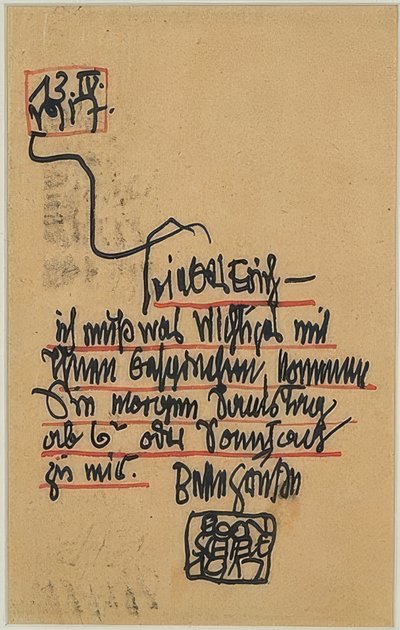 13.IV.
1917.
Lieber Erich —
ich muß was Wichtiges mit
Ihnen besprechen, kommen
Sie morgen Samstag
ab 6h oder Sonntag
zu mir. Beste Grüße
EGON
SCHIELE
1917